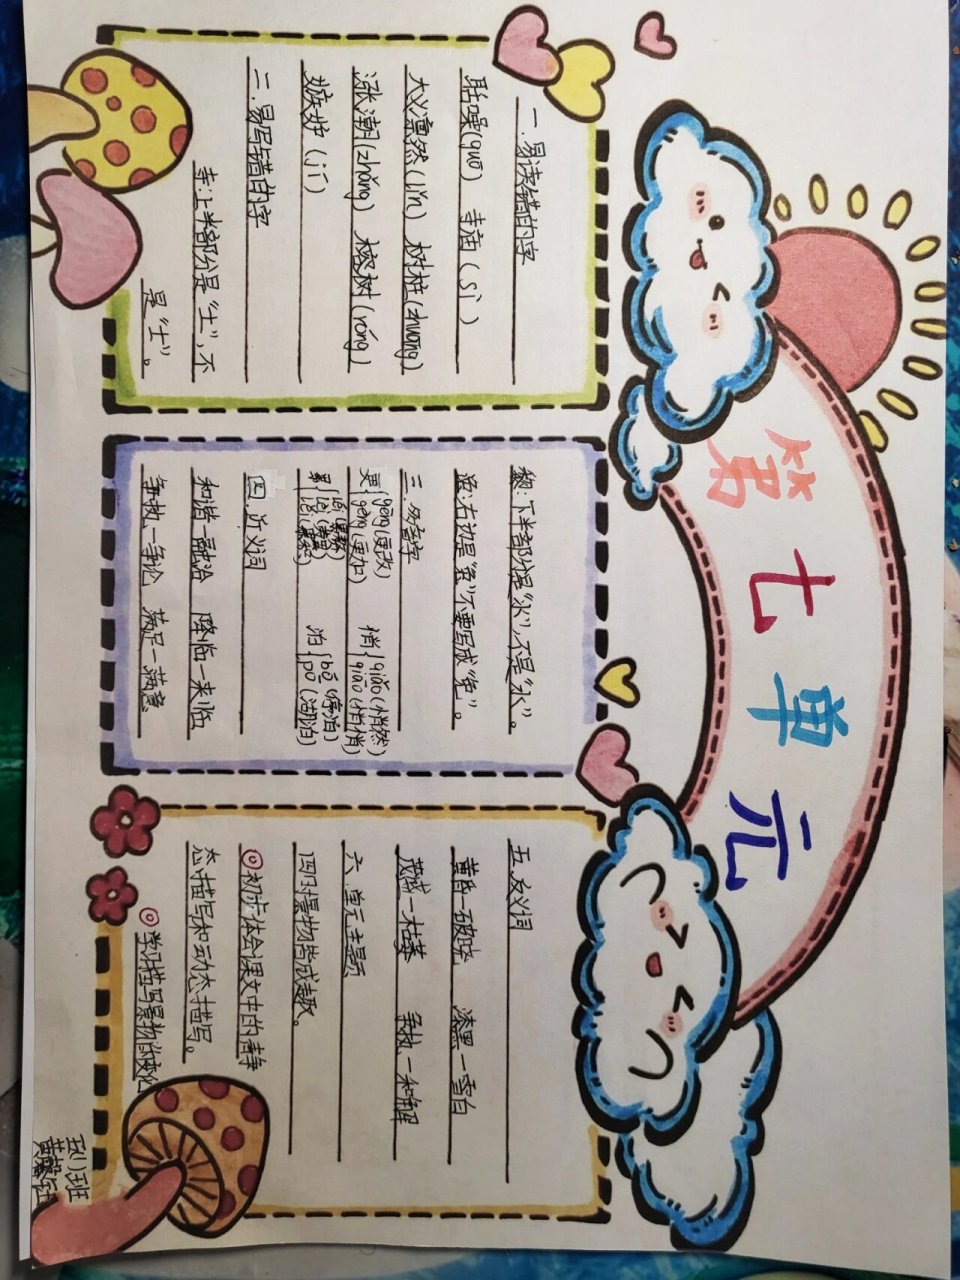 第七单元
一.易读错的字
聒噪(guō) 寺庙(sì)
大义凛然(lǐn) 树桩(zhuāng)
涨潮(zhǎng) 榕树(róng)
嫉妒(jí)
二.易写错的字
寺:上半部分是“土”,不
是“士”。
黎:下半部分是“氺”,不是“水”。
逸:右边是“兔”不要写成“免”。
三.多音字
更{gēng(更改) 悄{qiǎo(悄然)
gèng(更加) qiāo(悄悄)
累{ 泊{bó(停泊)
pō(湖泊)
四.近义词
和谐—融洽 降临—来临
争执—争论 满足—满意
五.反义词
黄昏—破晓 漆黑—雪白
茂盛—枯萎 争执—和解
六.单元主题
四时景物皆成趣。
◎初步体会课文中的静
态描写和动态描写。
◎学习描写景物的变化
五(1)班